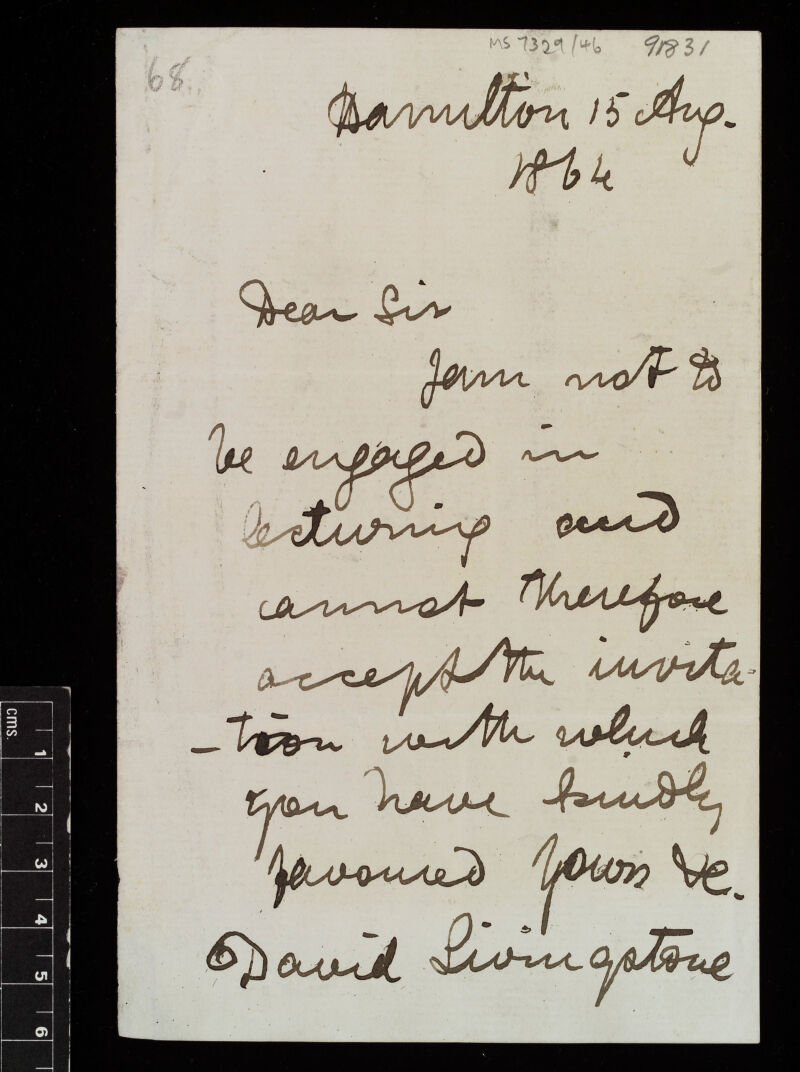 MS 7329/46 91831
68
Hamilton 15 Aug.
1864
Dear Sir
I am not to
be engaged in
lecturing and
cannot therefore
accept the invita-
-tion with which
you have kindly
favoured Yours &c.
David Livingstone
cms.
1
2
3
4
5
6